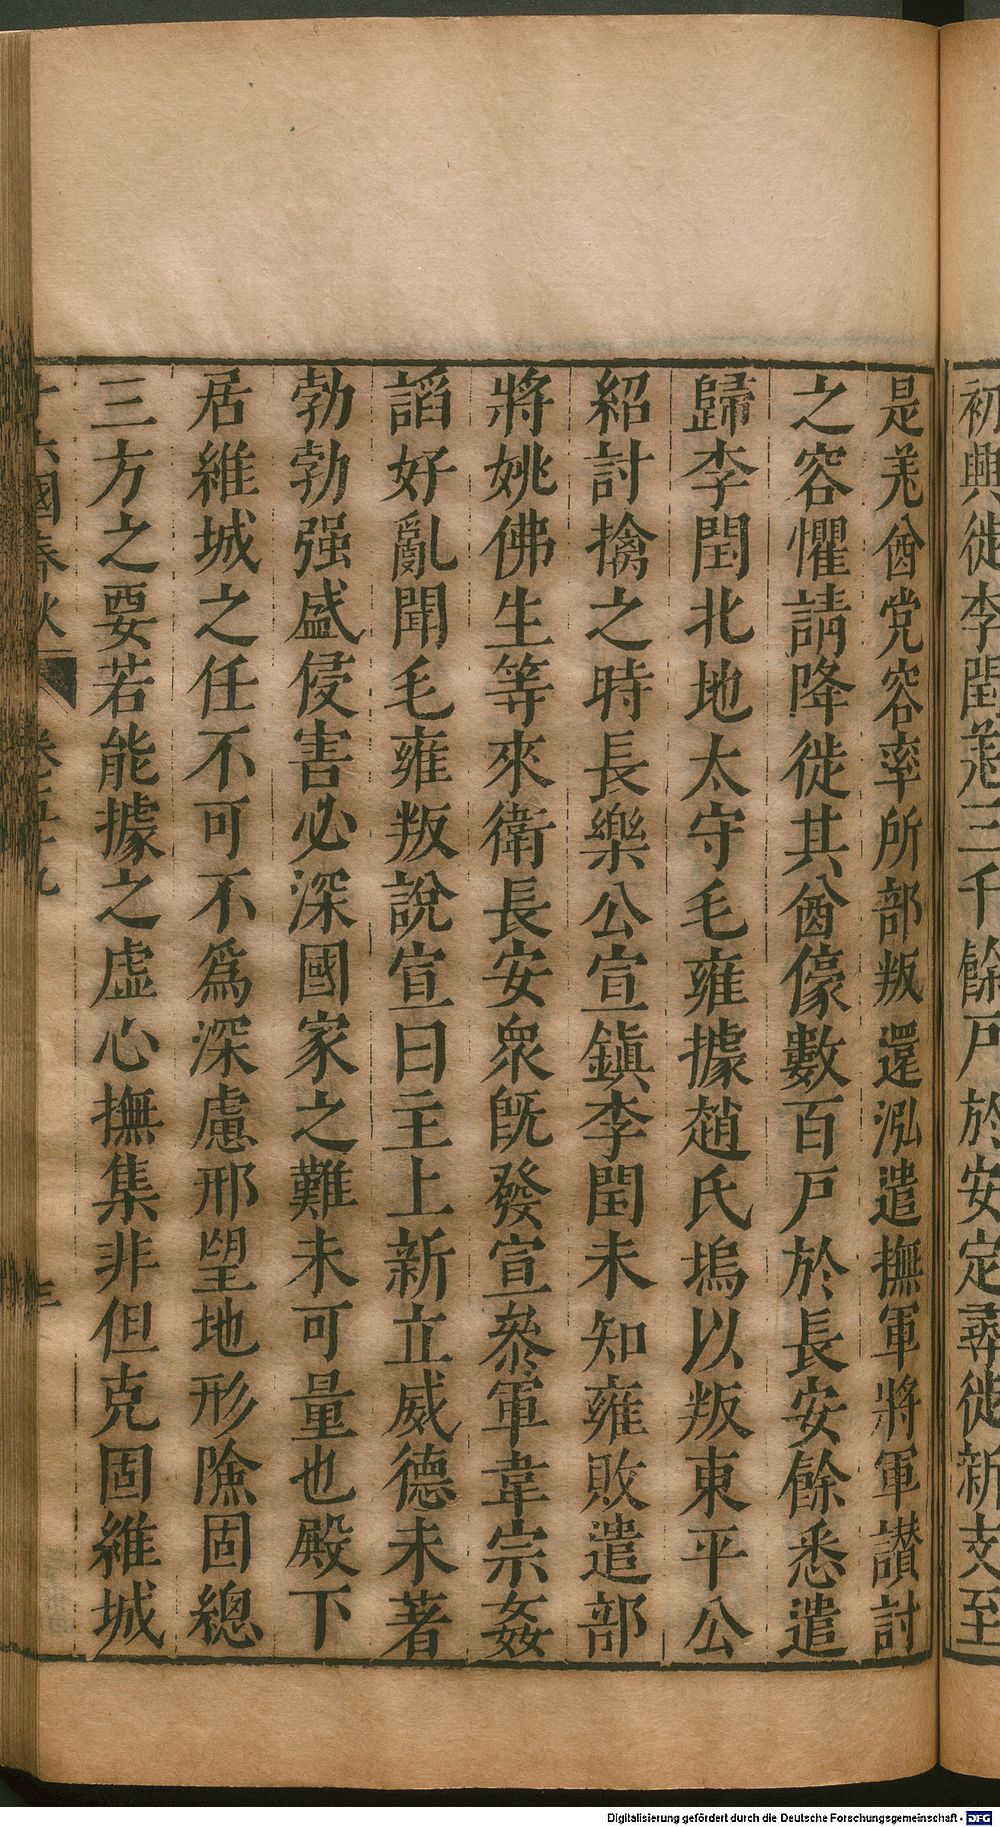 初興徙李閏羌三千餘戸於安定尋徙新支至
是羌酋党容率所部叛還泓遣撫軍將軍讃討
之容懼請降徙其酋僚數百戸於長安餘悉遣
歸李閏北地太守毛雍據趙氏塢以叛東平公
紹討擒之時長樂公宣鎭李閏未知雍敗遣部
將姚佛生等來衛長安衆旣發宣參軍韋宗姦
謟好亂聞毛雍叛說宣曰主上新立威德未著
勃勃强盛侵害必深國家之難未可量也殿下
居維城之任不可不爲深慮邢望地形險固總
三方之要若能據之虛心撫集非但克固維城
十六國春秋 卷五十九
Digitalisierung gefördert durch die Deutsche Forschungsgemeinschaft - DFG